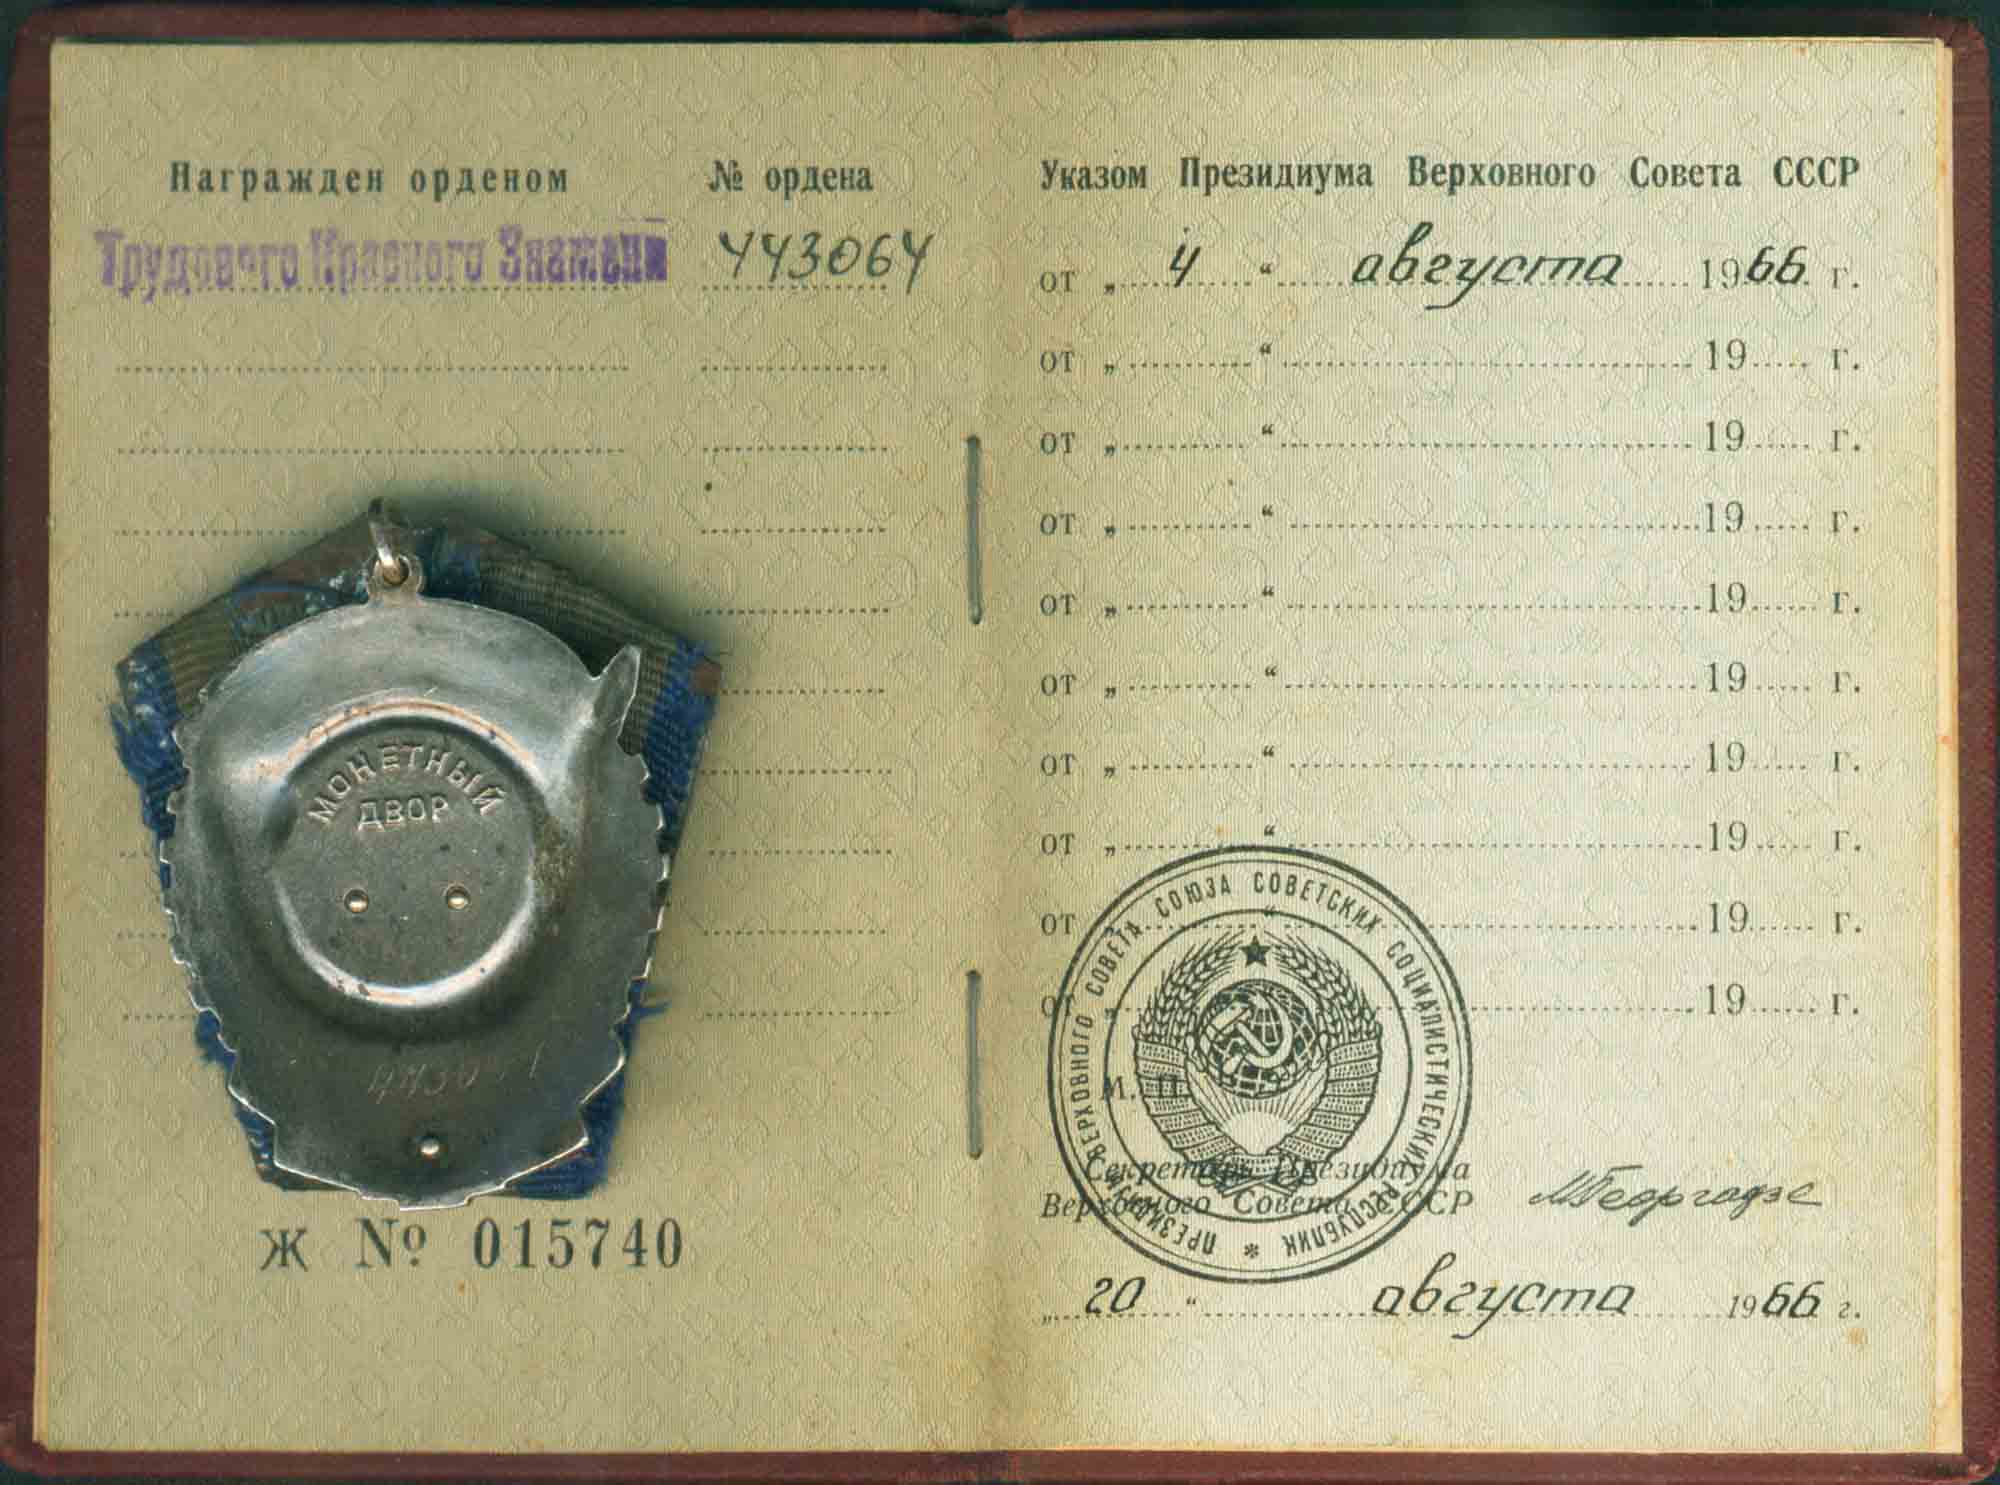 Награжден орденом
№ ордена
Трудового Красного Знамени
443064
МОНЕТНЫЙ
ДВОР
Ж № 015740
Указом Президиума Верховного Совета СССР
от „ 4 “ августа 1966 г.
от „ “ 19 г.
от „ “ 19 г.
от „ “ 19 г.
от „ “ 19 г.
от „ “ 19 г.
от „ “ 19 г.
от „ “ 19 г.
от „ “ 19 г.
от „ “ 19 г.
ПРЕЗИДИУМ ВЕРХОВНОГО СОВЕТА СОЮЗА СОВЕТСКИХ СОЦИАЛИСТИЧЕСКИХ РЕСПУБЛИК *
М. П.
Секретарь Президиума
Верховного Совета СССР
МГеоргадзе
„ 20 “ августа 1966 г.